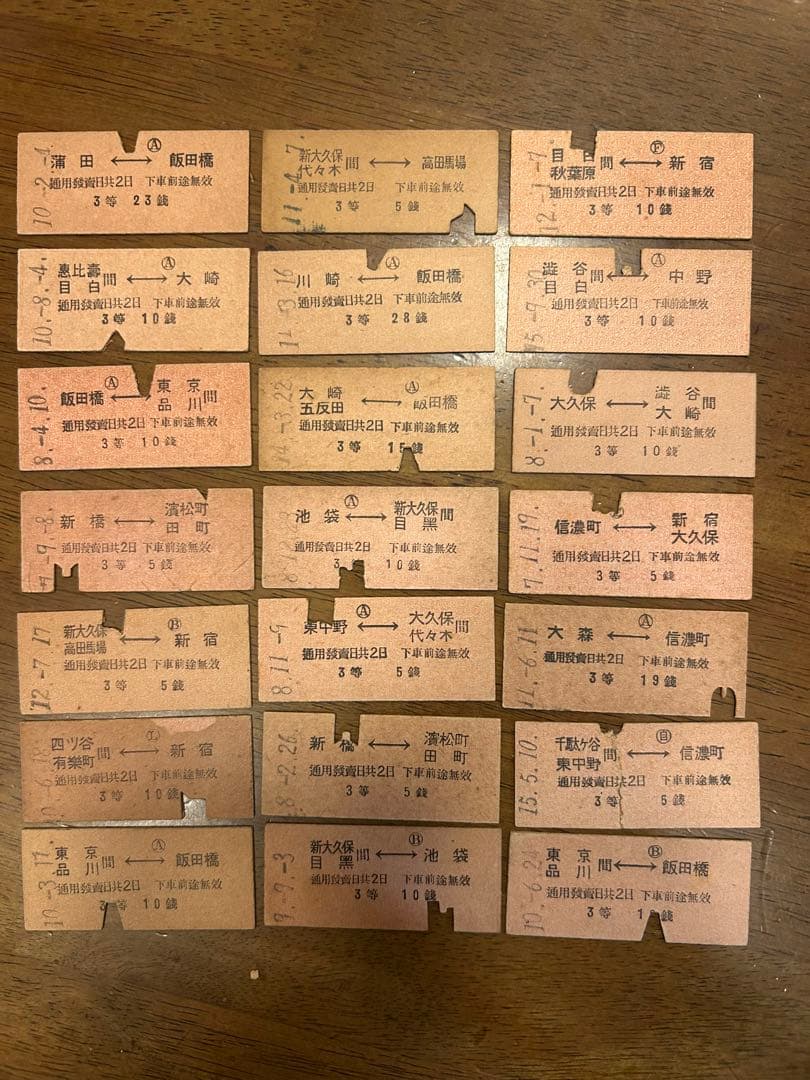 10.-2.-4.
Ⓐ
蒲田 ←→ 飯田橋
通用發賣日共2日 下車前途無效
3等 23錢
11.-4.-7.
新大久保
代々木
間 ←→ 高田馬場
通用發賣日共2日 下車前途無效
3等 5錢
12.-1.-7
Ⓕ
目白
秋葉原
間 ←→ 新宿
通用發賣日共2日 下車前途無效
3等 10錢
10.-8.-4.
Ⓐ
惠比壽
目白
間 ←→ 大崎
通用發賣日共2日 下車前途無效
3等 10錢
Ⓐ
川崎 ←→ 飯田橋
通用發賣日共2日 下車前途無效
3等 28錢
Ⓐ
澁谷
目白
間 ←→ 中野
通用發賣日共2日 下車前途無效
3等 10錢
8.-4.10.
Ⓐ
飯田橋 ←→
東京
品川
間
通用發賣日共2日 下車前途無效
3等 10錢
Ⓐ
大崎
五反田
←→ 飯田橋
通用發賣日共2日 下車前途無效
3等 15錢
8.-1.-7.
大久保 ←→
澁谷
大崎
間
通用發賣日共2日 下車前途無效
3等 10錢
新橋 ←→
濱松町
田町
通用發賣日共2日 下車前途無效
3等 5錢
Ⓐ
池袋 ←→
新大久保
目黑
間
通用發賣日共2日 下車前途無效
3等 10錢
7.11.19.
信濃町 ←→
新宿
大久保
通用發賣日共2日 下車前途無效
3等 5錢
12.-7.17
Ⓑ
新大久保
高田馬場
←→ 新宿
通用發賣日共2日 下車前途無效
3等 5錢
8.11.-9
Ⓐ
東中野 ←→
大久保
代々木
間
通用發賣日共2日 下車前途無效
3等 5錢
11.-6.11
Ⓐ
大森 ←→ 信濃町
通用發賣日共2日 下車前途無效
3等 19錢
Ⓛ
四ツ谷
有樂町
間 ←→ 新宿
通用發賣日共2日 下車前途無效
3等 10錢
8.-2.26.
新橋 ←→
濱松町
田町
通用發賣日共2日 下車前途無效
3等 5錢
15.5.10.
千駄ケ谷
東中野
間 ←→ 信濃町
通用發賣日共2日 下車前途無效
3等 5錢
10.-3.17.
Ⓐ
東京
品川
間 ←→ 飯田橋
通用發賣日共2日 下車前途無效
3等 10錢
Ⓑ
新大久保
目黑
間 ←→ 池袋
通用發賣日共2日 下車前途無效
3等 10錢
10.-6.24
Ⓑ
東京
品川
間 ←→ 飯田橋
通用發賣日共2日 下車前途無效
3等